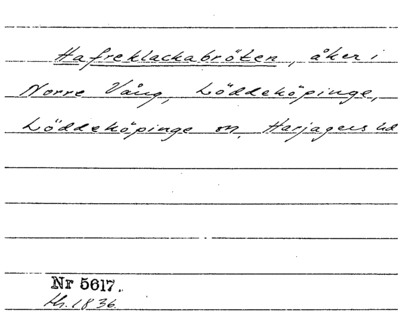 Hafreklackabröten, åker i
Norre Vång, Löddeköpinge,
Löddeköpinge sn. Harjagers hd
Nr 5617.
th. 1836